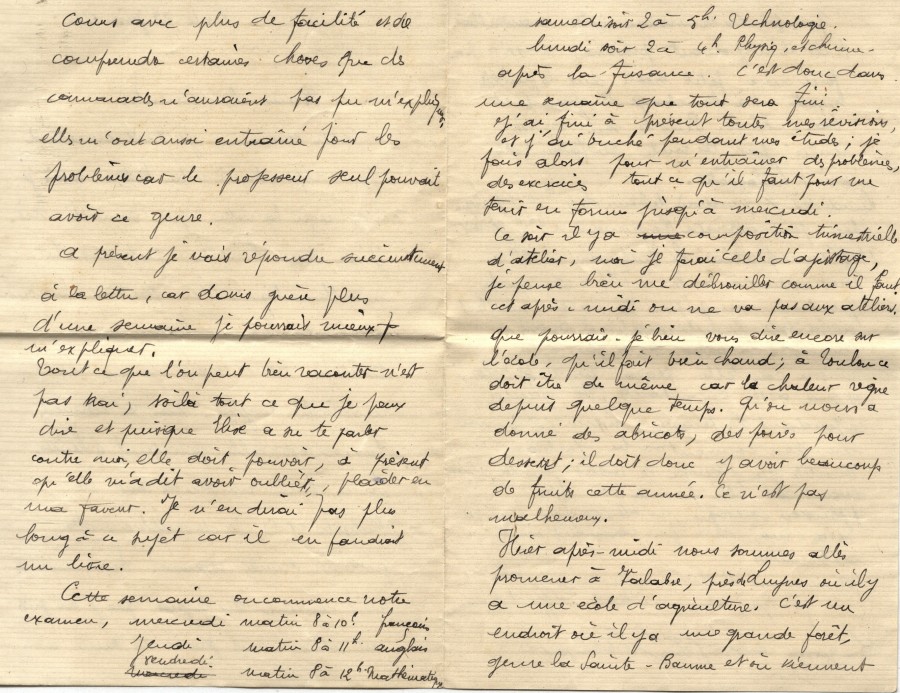 cours avec plus de facilité et de
comprendre certaines choses que des
camarades n'auraient pas pu m'expliquer,
elles m'ont aussi entraîné pour les
problèmes car le professeur seul pouvait
avoir ce genre.
A présent je vais répondre succintement
à ta lettre, car dans guère plus
d'une semaine je pourrais mieux
m'expliquer.
Tout ce que l'on peut bien raconter n'est
pas vrai, voilà tout ce que je peux
dire et puisque Elise a su te parler
contre moi, elle doit pouvoir, à présent
qu'elle m'a dit avoir oublier, plaider en
ma faveur. Je n'en dirai pas plus
long à ce sujet car il en faudrait
un livre.
Cette semaine on commence notre
examen, mercredi matin 8 à 10h. français
Jeudi matin 8 à 11h. anglais
vendredi
mercredi matin 8 à 12h. Mathématiq
samedi soir 2 à 5h. Technologie.
lundi soir 2 à 4h. Physiq. et chimie.
après la . C'est donc dans
une semaine que tout sera fini.
J'ai fini à présent toutes mes révisions,
et j'ai bûché pendant mes études; je
fais alors pour m'entraîner des problèmes,
des exercices tout ce qu'il faut pour me
tenir en forme jusqu'à mercredi.
Ce soir il y a une composition trimestrielle
d'atelier, moi je ferai celle d'ajustage,
je pense bien me débrouiller comme il faut
cet après-midi on ne va pas aux ateliers.
Que pourrais-je bien vous dire encore sur
l'école, qu'il fait bien chaud; à Toulon ce
doit être de même car la chaleur règne
depuis quelque temps. Qu'on nous a
donné des abricots, des poires pour
dessert; il doit donc y avoir beaucoup
de fruits cette année. Ce n'est pas
malheureux.
Hier après-midi nous sommes allés
promener à Valabre, près de Luynes où il y
a une école d'agriculture. C'est un
endroit où il y a une grande forêt,
genre la Sainte-Baume et où viennent